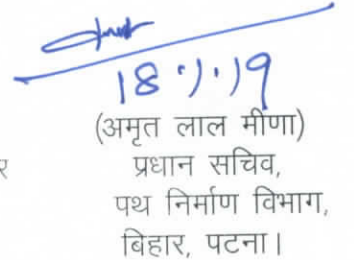 18.1.19
(अमृत लाल मीणा)
र
प्रधान सचिव,
पथ निर्माण विभाग,
बिहार, पटना।